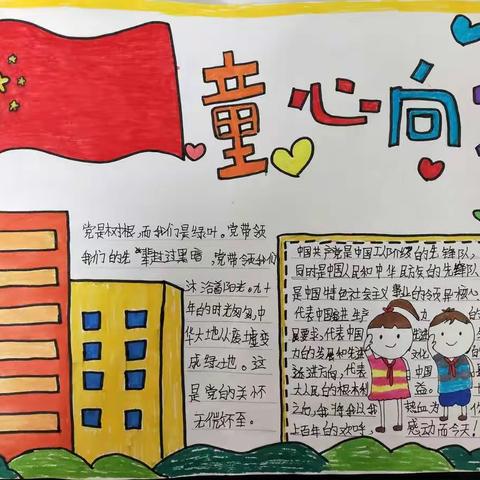 童心向
党是树根,而我们是绿叶。党带领
我们的生 ,党带领我们
沐浴着阳光。九十
年的时光匆匆,中
华大地从废墟变
成绿地。这
是党的关怀
无微不至。
中国共产党是中国工人阶级的先锋队,
同时是中国人民和中华民族的先锋队
是中国特色社会主义事业的领导核心
代表中国 进生产
展要求,代表中国
力的发展和 文化
进方向,代表 中国
大人民的根本利 益。
之向,我将我以我 热血为
上百年的欢呼, 感动而今天!